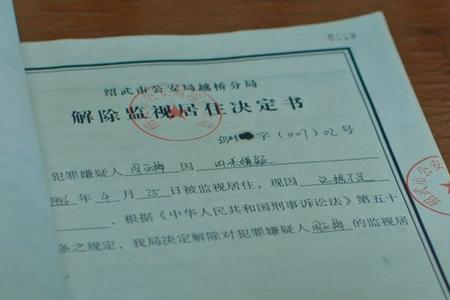 绍武市公安局越桥分局
解除监视居住决定书
字（007）02号
犯罪嫌疑人 因
1996年4月25日被监视居住，现因 证据不足
，根据《中华人民共和国刑事诉讼法》第五十
条之规定，我局决定解除对犯罪嫌疑人 的监视居
绍武市公安